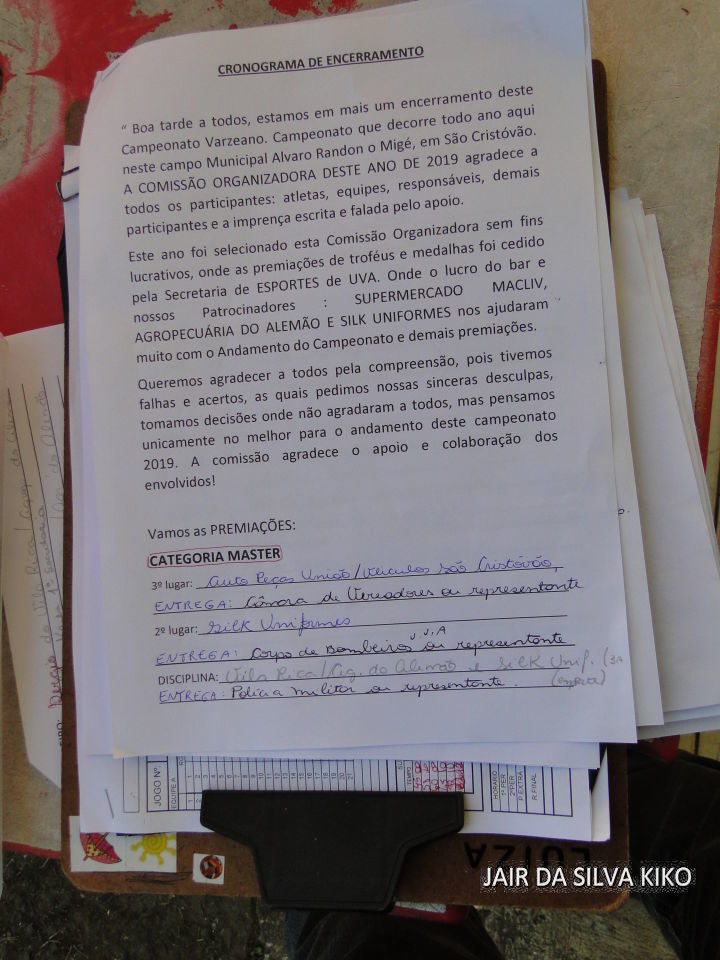 CRONOGRAMA DE ENCERRAMENTO
" Boa tarde a todos, estamos em mais um encerramento deste
Campeonato Varzeano. Campeonato que decorre todo ano aqui
neste campo Municipal Alvaro Randon o Migé, em São Cristóvão.
A COMISSÃO ORGANIZADORA DESTE ANO DE 2019 agradece a
todos os participantes: atletas, equipes, responsáveis, demais
participantes e a imprença escrita e falada pelo apoio.
Este ano foi selecionado esta Comissão Organizadora sem fins
lucrativos, onde as premiações de troféus e medalhas foi cedido
pela Secretaria de ESPORTES de UVA. Onde o lucro do bar e
nossos Patrocinadores : SUPERMERCADO MACLIV,
AGROPECUÁRIA DO ALEMÃO E SILK UNIFORMES nos ajudaram
muito com o Andamento do Campeonato e demais premiações.
Queremos agradecer a todos pela compreensão, pois tivemos
falhas e acertos, as quais pedimos nossas sinceras desculpas,
tomamos decisões onde não agradaram a todos, mas pensamos
unicamente no melhor para o andamento deste campeonato
2019. A comissão agradece o apoio e colaboração dos
envolvidos!
Vamos as PREMIAÇÕES:
CATEGORIA MASTER
3º lugar: Auto Peças União/Veiculos São Cristóvão,
ENTREGA: Câmara de Vereadores ou representante
2º lugar: Silk Uniformes
ENTREGA: Corpo de Bombeiro U.V.A ou representante
DISCIPLINA: Vila Rica/Ag. do Alemão e Silk Unif.
ENTREGA: Policia militar ou representante.
JOGO Nº
EQUIPE A
1 2 3 4 5 6 7 8 9 10 11 12 13 14 15 16 17 18 19 20 21
HORÁRIO
1º PER
2º PER
P. EXTRA
R. FINAL
LUIZA
JAIR DA SILVA KIKO